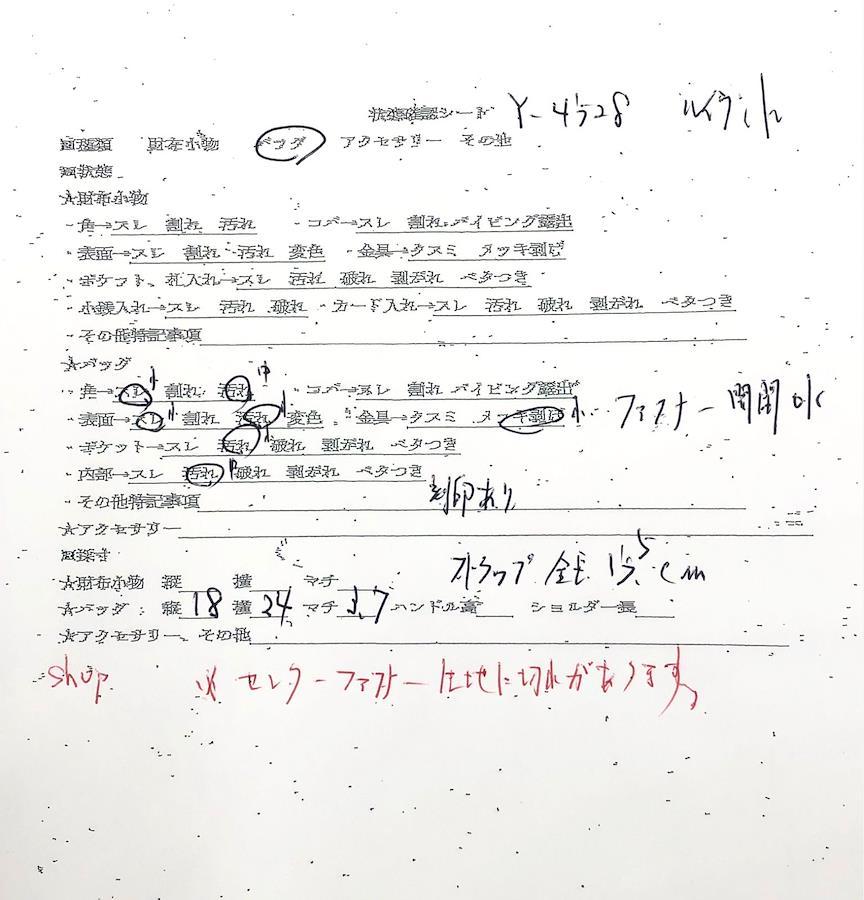 状態確認シート Y-4528 ルイヴィトン
□種類 財布小物 バッグ アクセサリー その他
□状態
☆財布小物
・角→スレ 割れ 汚れ ・コバ→スレ 割れ パイピング露出
・表面→スレ 割れ 汚れ 変色 ・金具→クスミ メッキ剥げ
・ポケット、札入れ→スレ 汚れ 破れ 剥がれ ベタつき
・小銭入れ→スレ 汚れ 破れ ・カード入れ→スレ 汚れ 破れ 剥がれ ベタつき
・その他特記事項
☆バッグ
・角→スレ 小 割れ 汚れ 中 ・コバ→スレ 割れ パイピング露出
・表面→スレ 小 割れ 汚れ 小 変色 ・金具→クスミ メッキ剥げ 小 ファスナー開閉
・ポケット→スレ 汚れ 小 破れ 剥がれ ベタつき
・内部→スレ 汚れ 中 破れ 剥がれ ベタつき
・その他特記事項 刻印あり
☆アクセサリー
□採寸 ストラップ 全長
☆財布小物 縦 横 マチ
☆バッグ:縦 18 横 24 マチ ハンドル高 ショルダー長
☆アクセサリー、その他
shop ※センターファスナー生地に切れがあります。